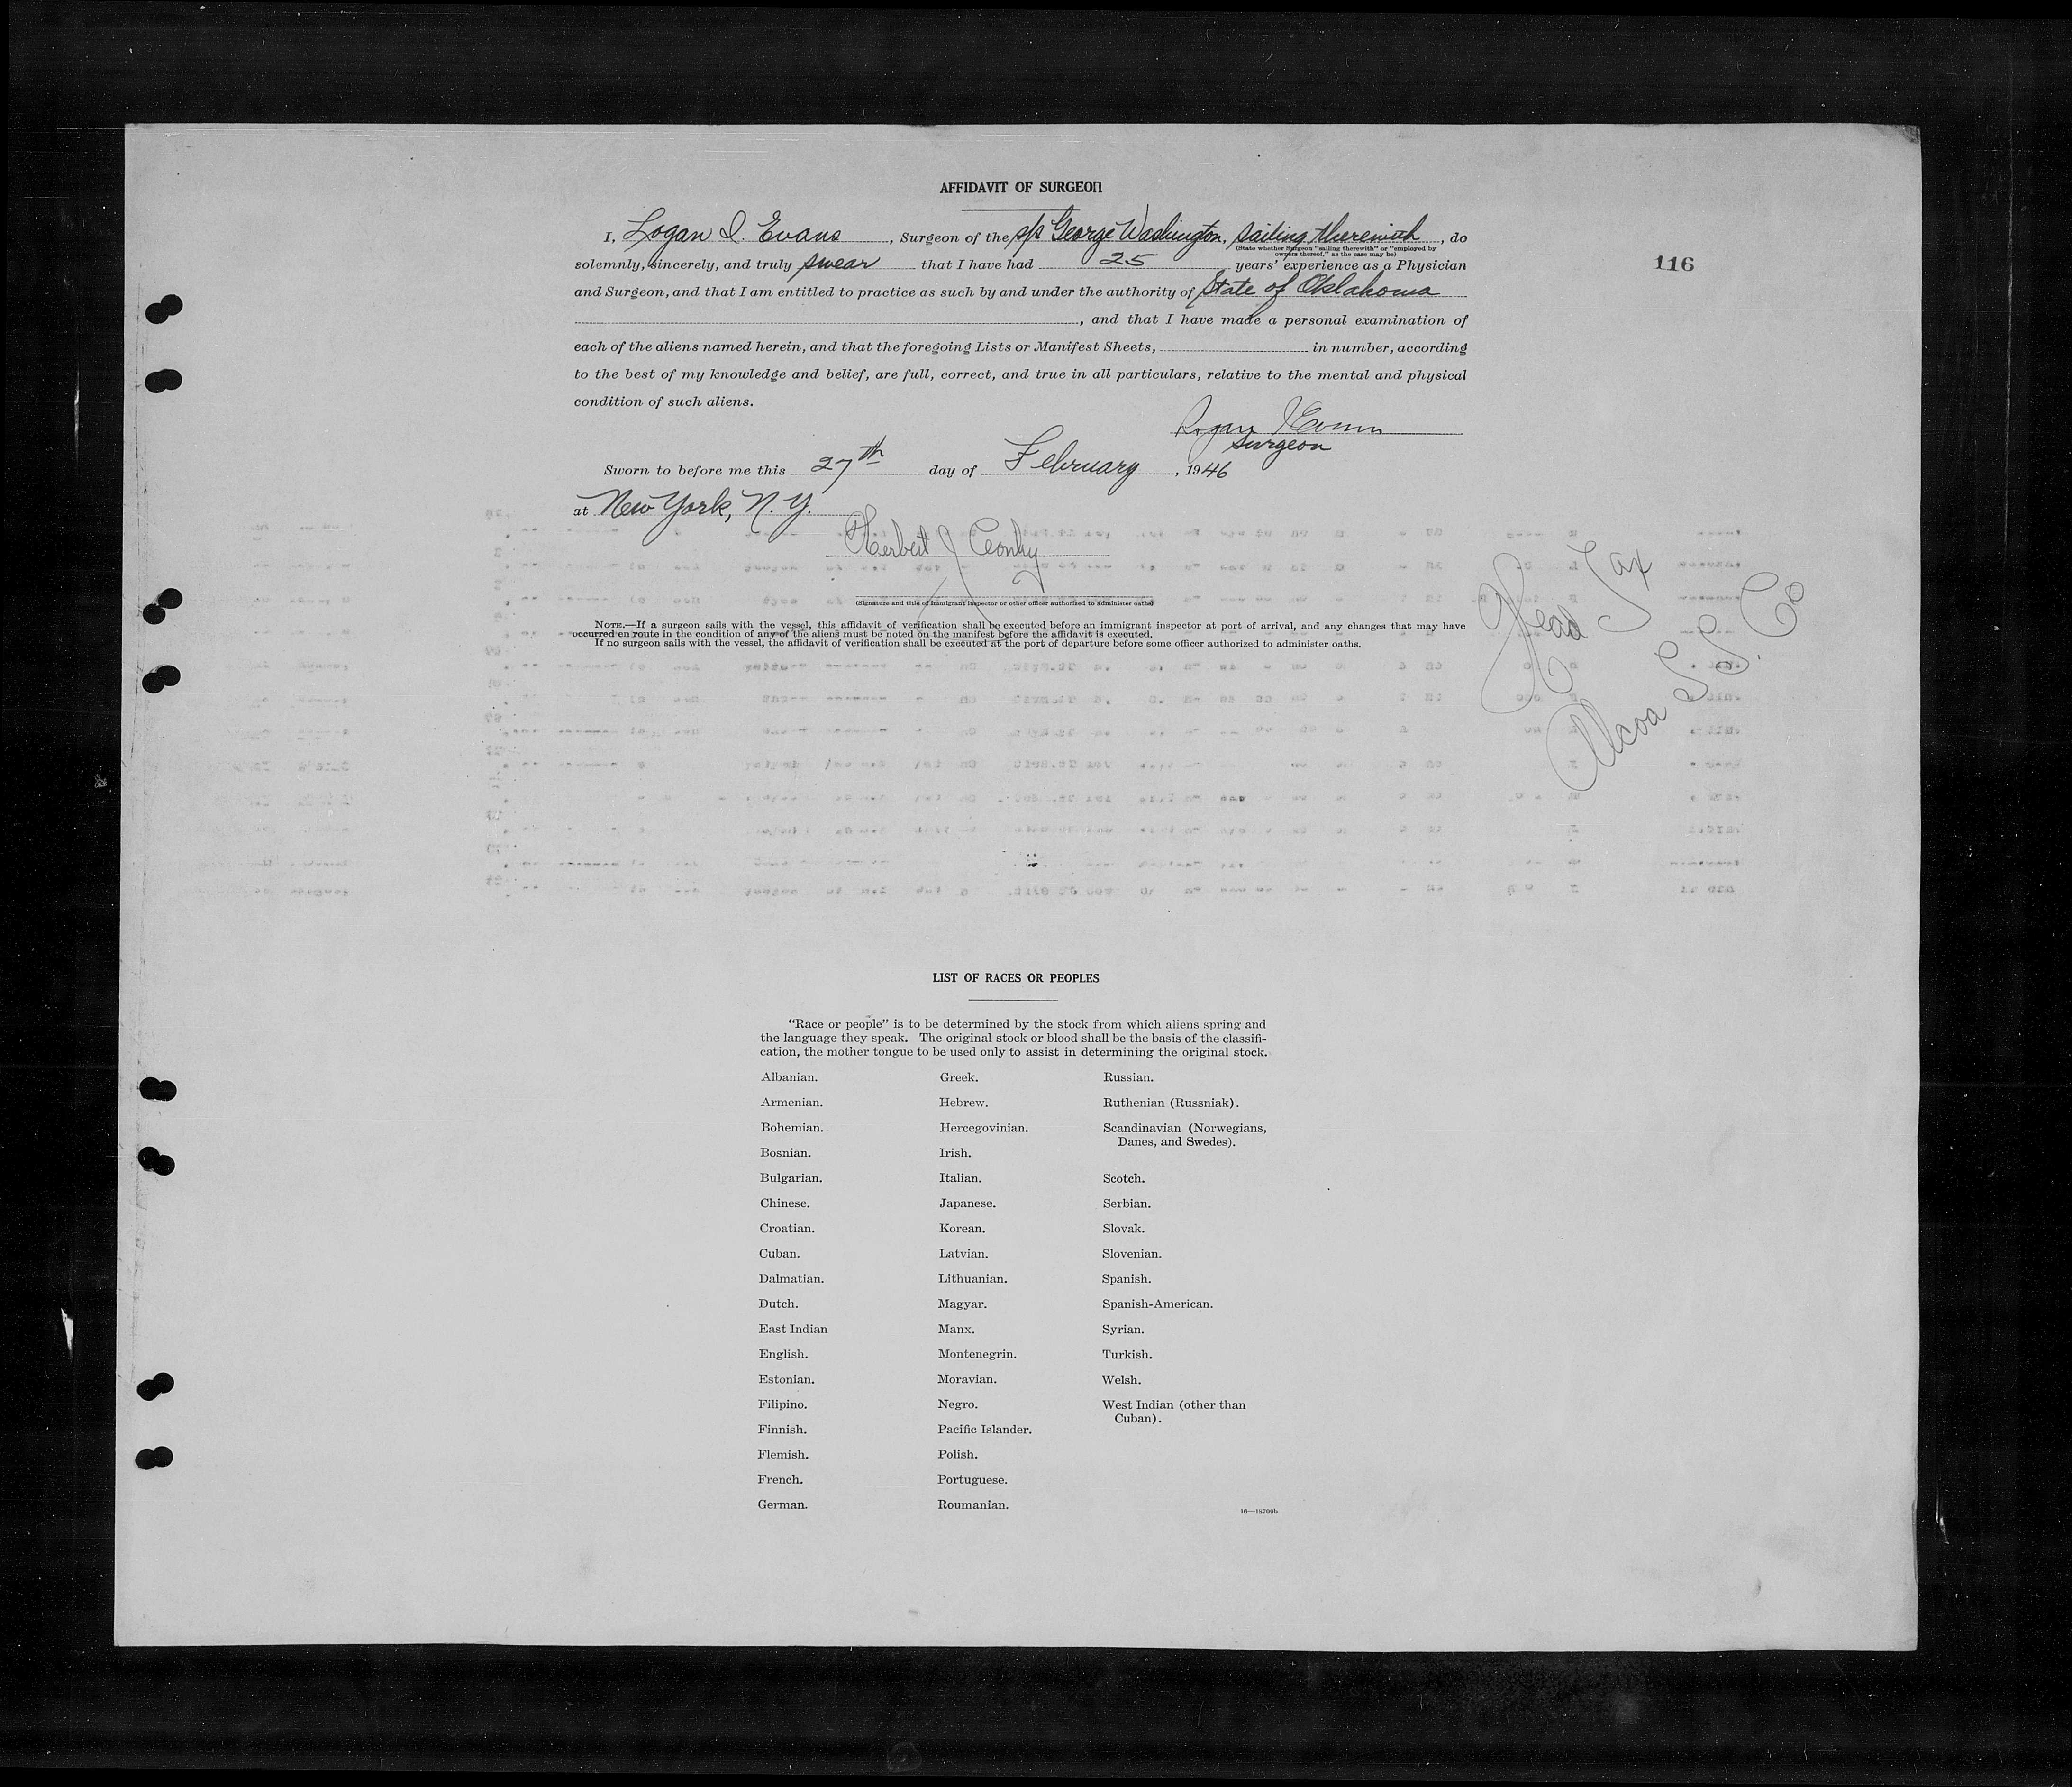 AFFIDAVIT OF SURGEON
I, Logan I. Evans, Surgeon of the s/s George Washington, sailing therewith, do
(State whether Surgeon "sailing therewith" or "employed by
owners thereof," as the case may be)
116
solemnly, sincerely, and truly swear that I have had 25 years' experience as a Physician
and Surgeon, and that I am entitled to practice as such by and under the authority of State of Oklahoma
, and that I have made a personal examination of
each of the aliens named herein, and that the foregoing Lists or Manifest Sheets, in number, according
to the best of my knowledge and belief, are full, correct, and true in all particulars, relative to the mental and physical
condition of such aliens.
Logan I Evans
Surgeon
Sworn to before me this 27th day of February, 1946
at New York, N. Y.
Herbert J
(Signature and title of immigrant inspector or other officer authorized to administer oaths)
Head Tax
Alcoa S. S. Co
NOTE.—If a surgeon sails with the vessel, this affidavit of verification shall be executed before an immigrant inspector at port of arrival, and any changes that may have
occurred en route in the condition of any of the aliens must be noted on the manifest before the affidavit is executed.
If no surgeon sails with the vessel, the affidavit of verification shall be executed at the port of departure before some officer authorized to administer oaths.
LIST OF RACES OR PEOPLES
"Race or people" is to be determined by the stock from which aliens spring and
the language they speak. The original stock or blood shall be the basis of the classifi-
cation, the mother tongue to be used only to assist in determining the original stock.
Albanian.
Armenian.
Bohemian.
Bosnian.
Bulgarian.
Chinese.
Croatian.
Cuban.
Dalmatian.
Dutch.
East Indian
English.
Estonian.
Filipino.
Finnish.
Flemish.
French.
German.
Greek.
Hebrew.
Hercegovinian.
Irish.
Italian.
Japanese.
Korean.
Latvian.
Lithuanian.
Magyar.
Manx.
Montenegrin.
Moravian.
Negro.
Pacific Islander.
Polish.
Portuguese.
Roumanian.
Russian.
Ruthenian (Russniak).
Scandinavian (Norwegians,
Danes, and Swedes).
Scotch.
Serbian.
Slovak.
Slovenian.
Spanish.
Spanish-American.
Syrian.
Turkish.
Welsh.
West Indian (other than
Cuban).
16—18709b